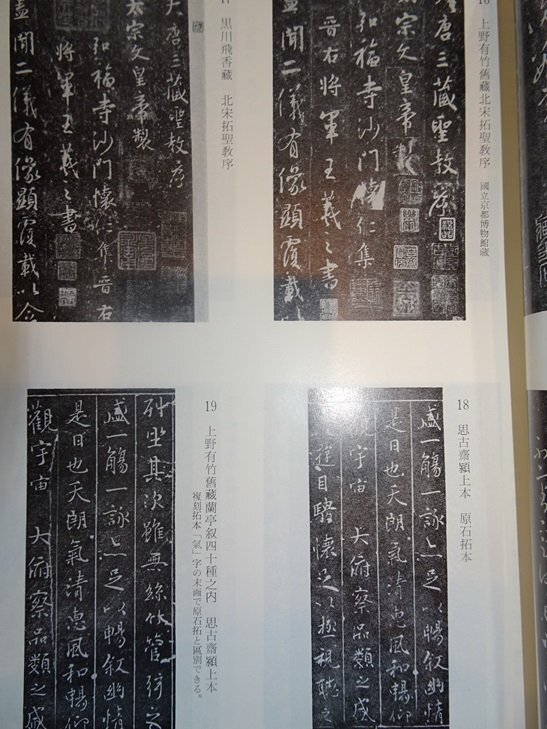 16 上野有竹舊藏北宋拓聖教序 國立京都博物館藏
大唐三藏聖教序
太宗文皇帝製
弘福寺沙門懷仁集
晉右將軍王羲之書
蓋聞二儀有像顯覆載以
黒川飛香藏 北宋拓聖教序
大唐三藏聖教序
太宗文皇帝製
弘福寺沙門懷仁集晉右
將軍王羲之書
蓋聞二儀有像顯覆載以含
18 思古齋潁上本 原石拓本
盛一觴一詠亦足以暢叙幽情
是日也天朗氣清惠風和暢仰
觀宇宙 大俯察品類之盛
遊目騁懷足以極視聽之
19 上野有竹舊藏蘭亭叙四十種之内 思古齋潁上本
複刻拓本「氣」字の末画で原石拓と區別できる。
列坐其次雖無絲竹管弦之
盛一觴一詠亦足以暢叙幽情
是日也天朗氣清惠風和暢仰
觀宇宙 大俯察品類之盛